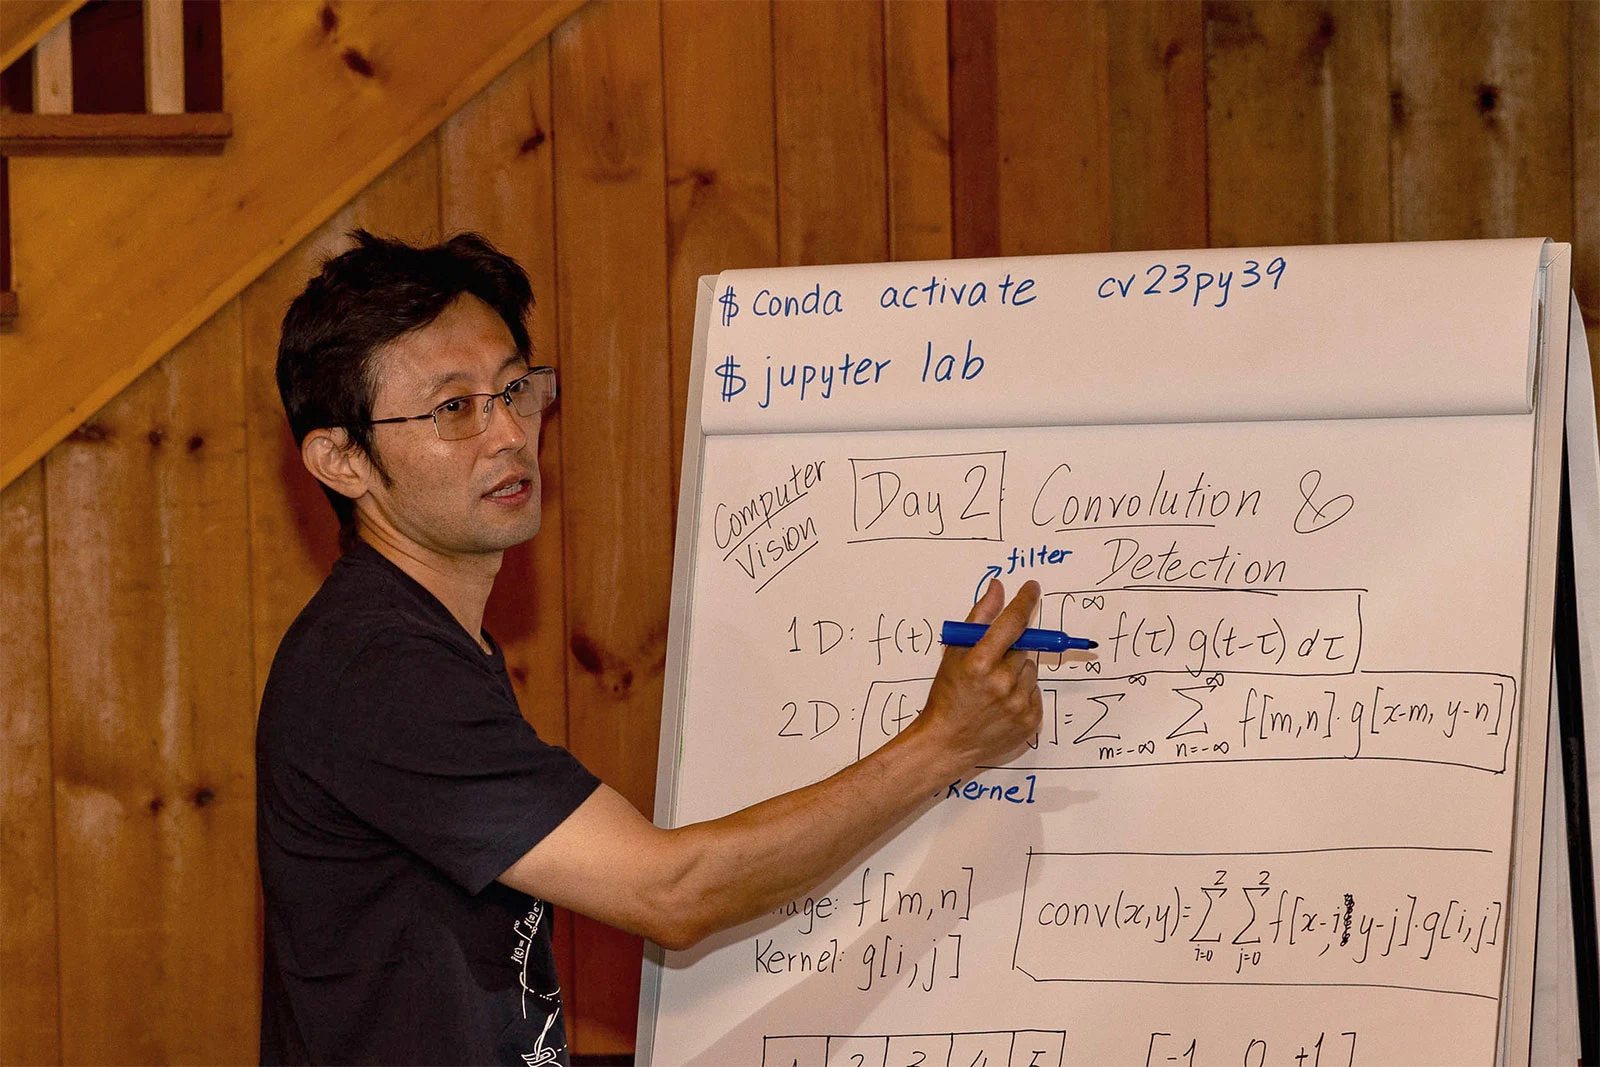 $ conda activate cv23py39
$ jupyter lab
Computer
Vision
Day 2: Convolution &
Detection
filter
1D: f(t) ∫_{-∞}^{∞} f(τ) g(t-τ) dτ
2D: (f ]= ∑_{m=-∞}^{∞} ∑_{n=-∞}^{∞} f[m,n]·g[x-m, y-n]
Kernel
f[m,n]
Kernel: g[i,j]
conv(x,y)= ∑_{i=0}^{2} ∑_{j=0}^{2} f[x-i, y-j]·g[i,j]
1 2 3 4 5
[-1 0 +1]